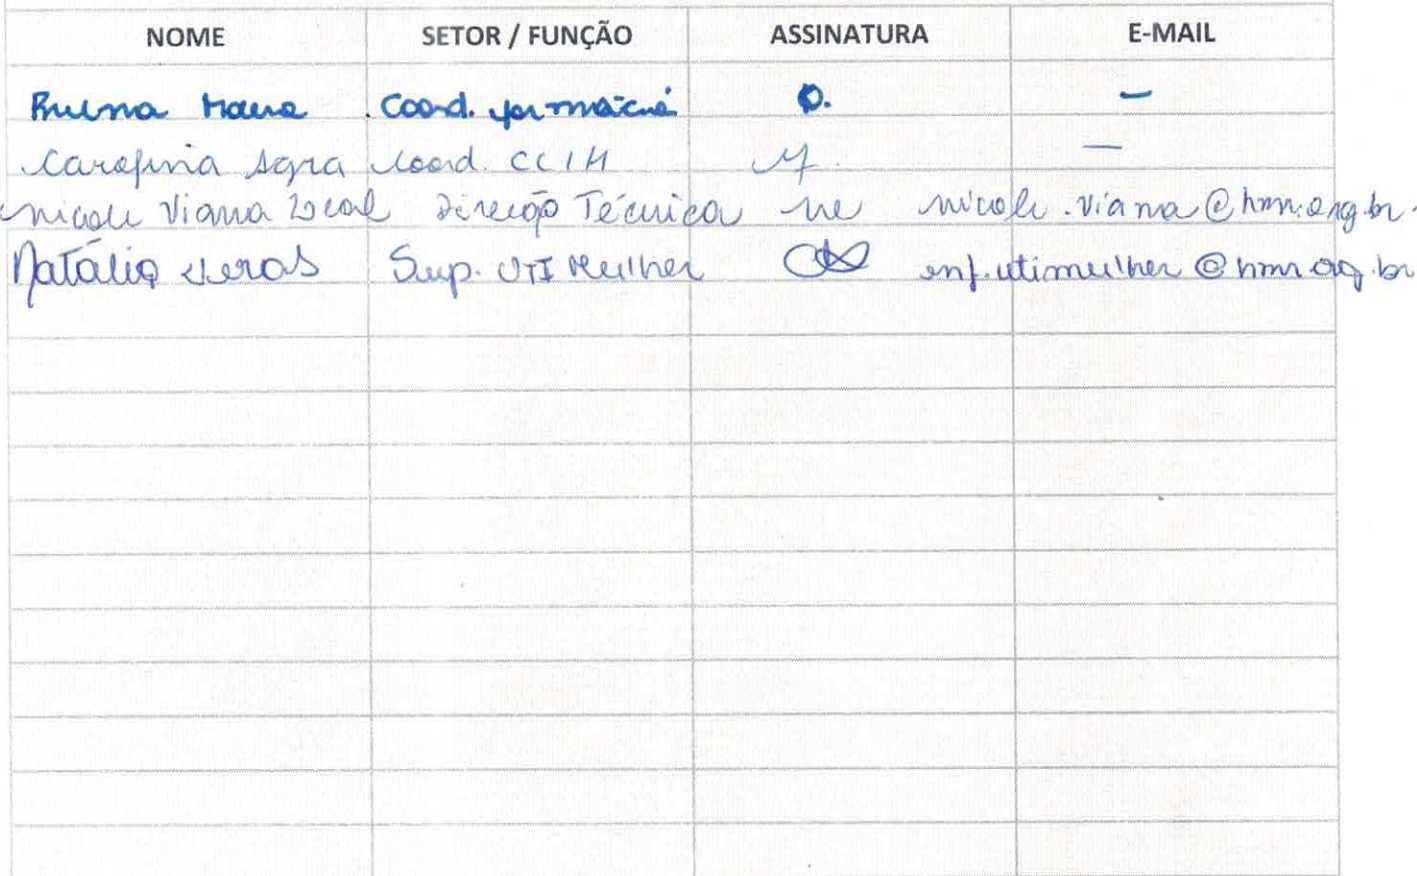 NOME SETOR / FUNÇÃO ASSINATURA E-MAIL
Bruna Coord. farmácia —
Carolina Agra Coord. CCIH —
Nicole Viana Leal Direção Técnica nicole.viana@hmr.org.br
Natália Veras Sup. UTI Mulher enf.utimulher@hmr.org.br